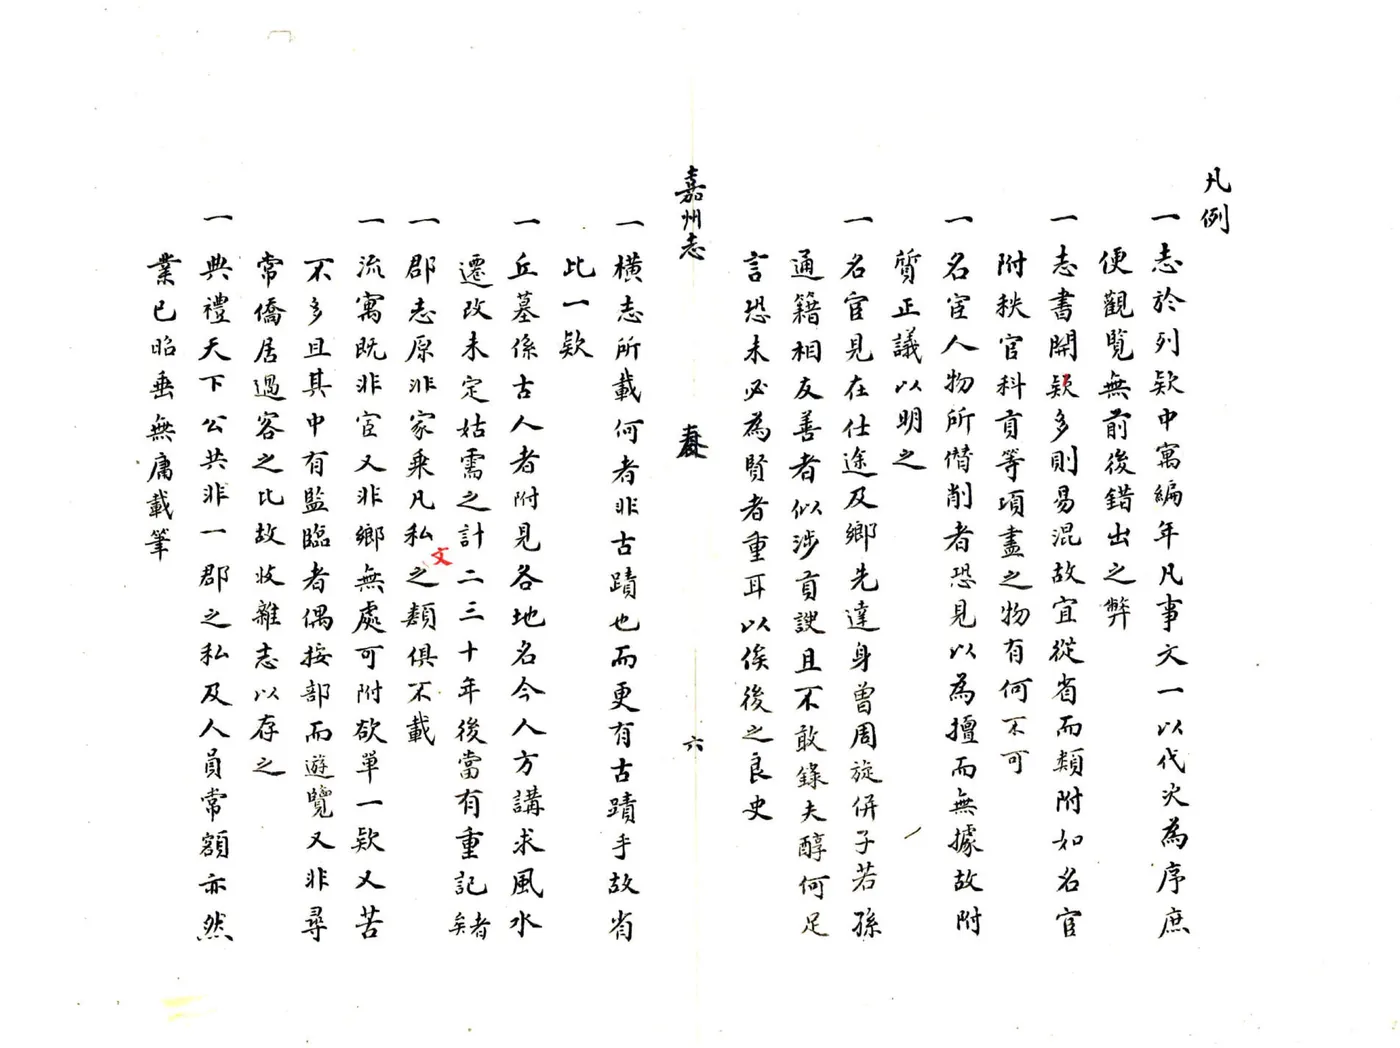 凡例
一志於列欵中寓編年凡事文一以代次為序庶
便觀覽無前後錯出之弊
一志書開欵多則易混故宜從省而類附如名官
附秩官科貢等項盡之物有何不可
一名宦人物所僣削者恐見以為擅而無據故附
質正議以明之
一名宦見在仕途及鄉先達身曾周旋併子若孫
通籍相友善者似涉貢諛且不敢錄夫醇何足
言恐未必為賢者重耳以俟後之良史
嘉州志
六
一橫志所載何者非古蹟也而更有古蹟乎故省
此一欵
一丘墓係古人者附見各地名今人方講求風水
遷改未定姑需之計二三十年後當有重記者矣
一郡志原非家乘凡私文之類俱不載
一流寓既非宦又非鄉無處可附欲單一欵又苦
不多且其中有監臨者偶按部而遊覽又非尋
常僑居過客之比故收雜志以存之
一典禮天下公共非一郡之私及人員常額亦然
業已昭垂無庸載筆